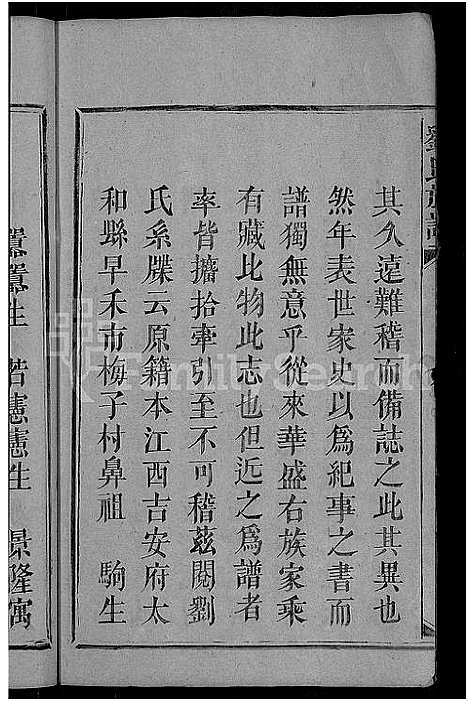 劉氏族譜
其久遠難稽而備誌之此其異也
然年表世家史以為紀事之書而
譜獨無意乎從來華盛右族家乘
有藏比物此志也但近之為譜者
率皆攟拾牽引至不可稽茲閱劉
氏系牒云原籍本江西吉安府太
和縣早禾市梅子村鼻祖　駒生
生　若憲憲生　景隆寓
FamilySearch